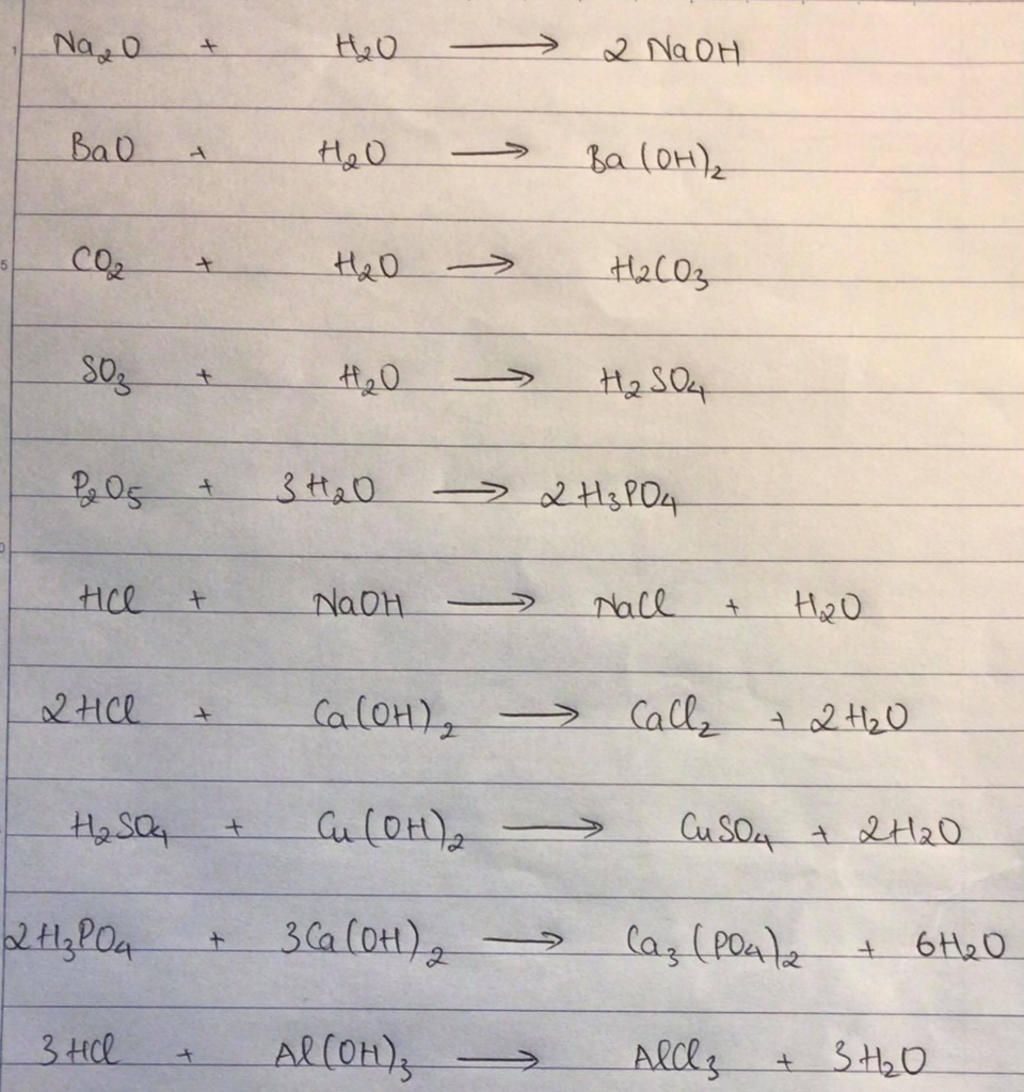 Na₂O + H₂O ⟶ 2 NaOH
BaO + H₂O ⟶ Ba(OH)₂
CO₂ + H₂O ⟶ H₂CO₃
SO₃ + H₂O ⟶ H₂SO₄
P₂O₅ + 3H₂O ⟶ 2H₃PO₄
HCl + NaOH ⟶ NaCl + H₂O
2HCl + Ca(OH)₂ ⟶ CaCl₂ + 2H₂O
H₂SO₄ + Cu(OH)₂ ⟶ CuSO₄ + 2H₂O
2H₃PO₄ + 3Ca(OH)₂ ⟶ Ca₃(PO₄)₂ + 6H₂O
3HCl + Al(OH)₃ ⟶ AlCl₃ + 3H₂O